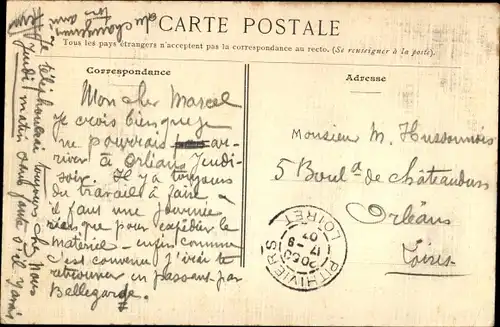 CARTE POSTALE
Tous les pays étrangers n'acceptent pas la correspondance au recto. (Se renseigner à la poste).
Correspondance
Mon cher Marcel
je crois bien que je
ne pourrais arriver
à Orléans Jeudi
soir. Il y a toujours
du travail à faire
il faut une journée
rien que pour expédier le
matériel - enfin comme
c'est convenu j'irai te
retrouver en passant par
Bellegarde.
Je téléphonerai toujours chez nous
Jeudi matin sans faute s'il y avait
du changement
Adresse
Monsieur M. Hussonnois
5 Boul.d de Châteaudun
Orléans
Loiret
PITHIVIERS
LOIRET
17 - 8
07